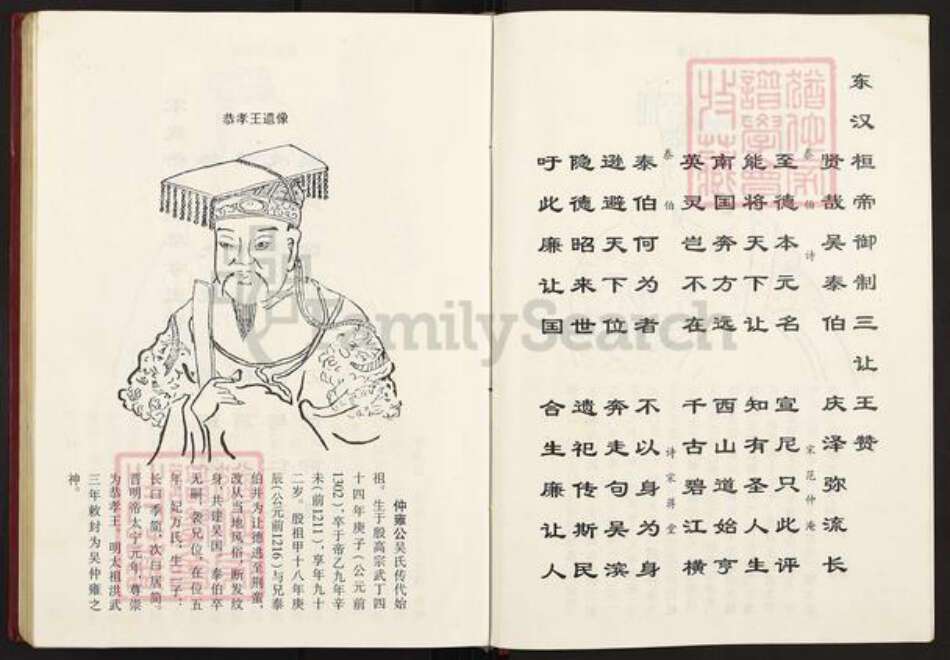 东汉桓帝御制三让王赞
贤哉吴泰伯 庆泽弥流长
泰伯诗 宋范仲淹
至德本元名 宣尼只此评
能将天下让 知有圣人生
南国奔方远 西山道始亨
英灵岂不在 千古碧江横
泰伯 诗宋蒋堂
泰伯何为者 不以身为身
逊避天下位 奔走句吴滨
隐德昭来世 遗祀传斯民
吁此廉让国 合生廉让人
猶他家
譜學會
收藏
恭孝王遺像
仲雍公吴氏传代始
祖。生于殷高宗武丁四
十四年庚子(公元前
1302)，卒于帝乙九年辛
未(前1211)，享年九十
二岁。殷祖甲十八年庚
辰(公元前1216)与兄泰
伯并为让德逃至荆蛮，
改从当地风俗，断发纹
身，共建吴国。泰伯卒
无嗣，袭兄位，在位五
年。妃万氏，生二子：
长曰季简，次曰居简。
晋明帝太宁元年，尊崇
为恭孝王。明太祖洪武
三年敕封为吴仲雍之
神。
FamilySearch